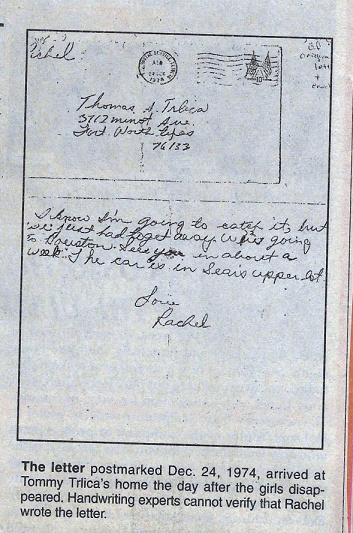 Rachel
Thomas A. Trlica
3712 minot Ave.
Fort Worth Texas
76133
I know I'm going to catch it, but
we just had to get away. We're going
to Houston. See you in about a
week. The car is in Sear's upper lot.
Love
Rachel
The letter postmarked Dec. 24, 1974, arrived at
Tommy Trlica's home the day after the girls disap-
peared. Handwriting experts cannot verify that Rachel
wrote the letter.